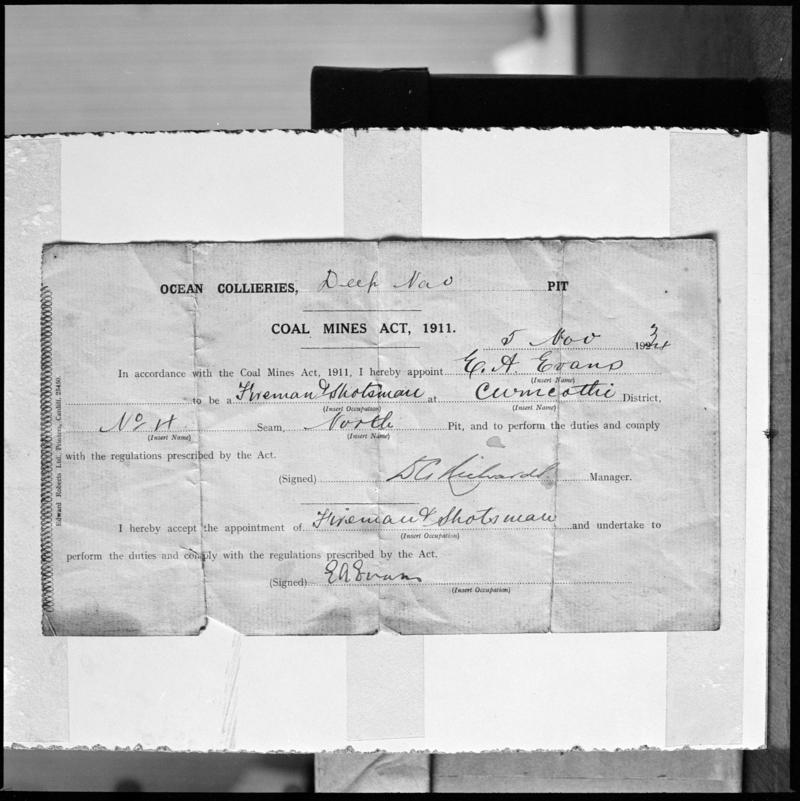 OCEAN COLLIERIES, Deep Nav PIT
COAL MINES ACT, 1911.
5 Nov 193
In accordance with the Coal Mines Act, 1911, I hereby appoint E. A. Evans
(Insert Name)
to be a Fireman & Shotsman at Cwmcothi District,
(Insert Occupation) (Insert Name)
No 4 Seam, North Pit, and to perform the duties and comply
(Insert Name) (Insert Name)
with the regulations prescribed by the Act.
(Signed) Richards Manager.
I hereby accept the appointment of Fireman & Shotsman and undertake to
(Insert Occupation)
perform the duties and comply with the regulations prescribed by the Act.
(Signed) E A Evans
(Insert Occupation)
Edward Roberts Ltd. Printers, Cardiff. 25450.